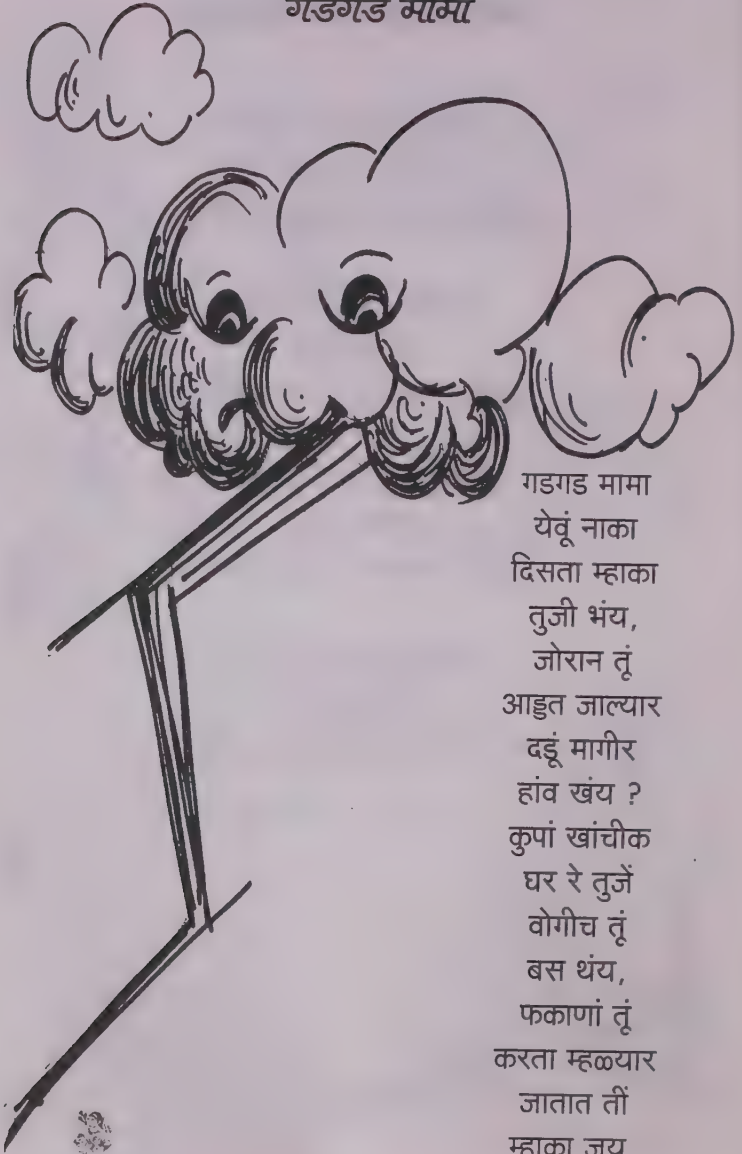 गडगड मामा
गडगड मामा
येवूं नाका
दिसता म्हाका
तुजी भंय,
जोरान तूं
आड्डत जाल्यार
दडूं मागीर
हांव खंय ?
कुपां खांचीक
घर रे तुजें
वोगीच तूं
बस थंय,
फकाणां तूं
करता म्हळ्यार
जातात तीं
म्हाका जय